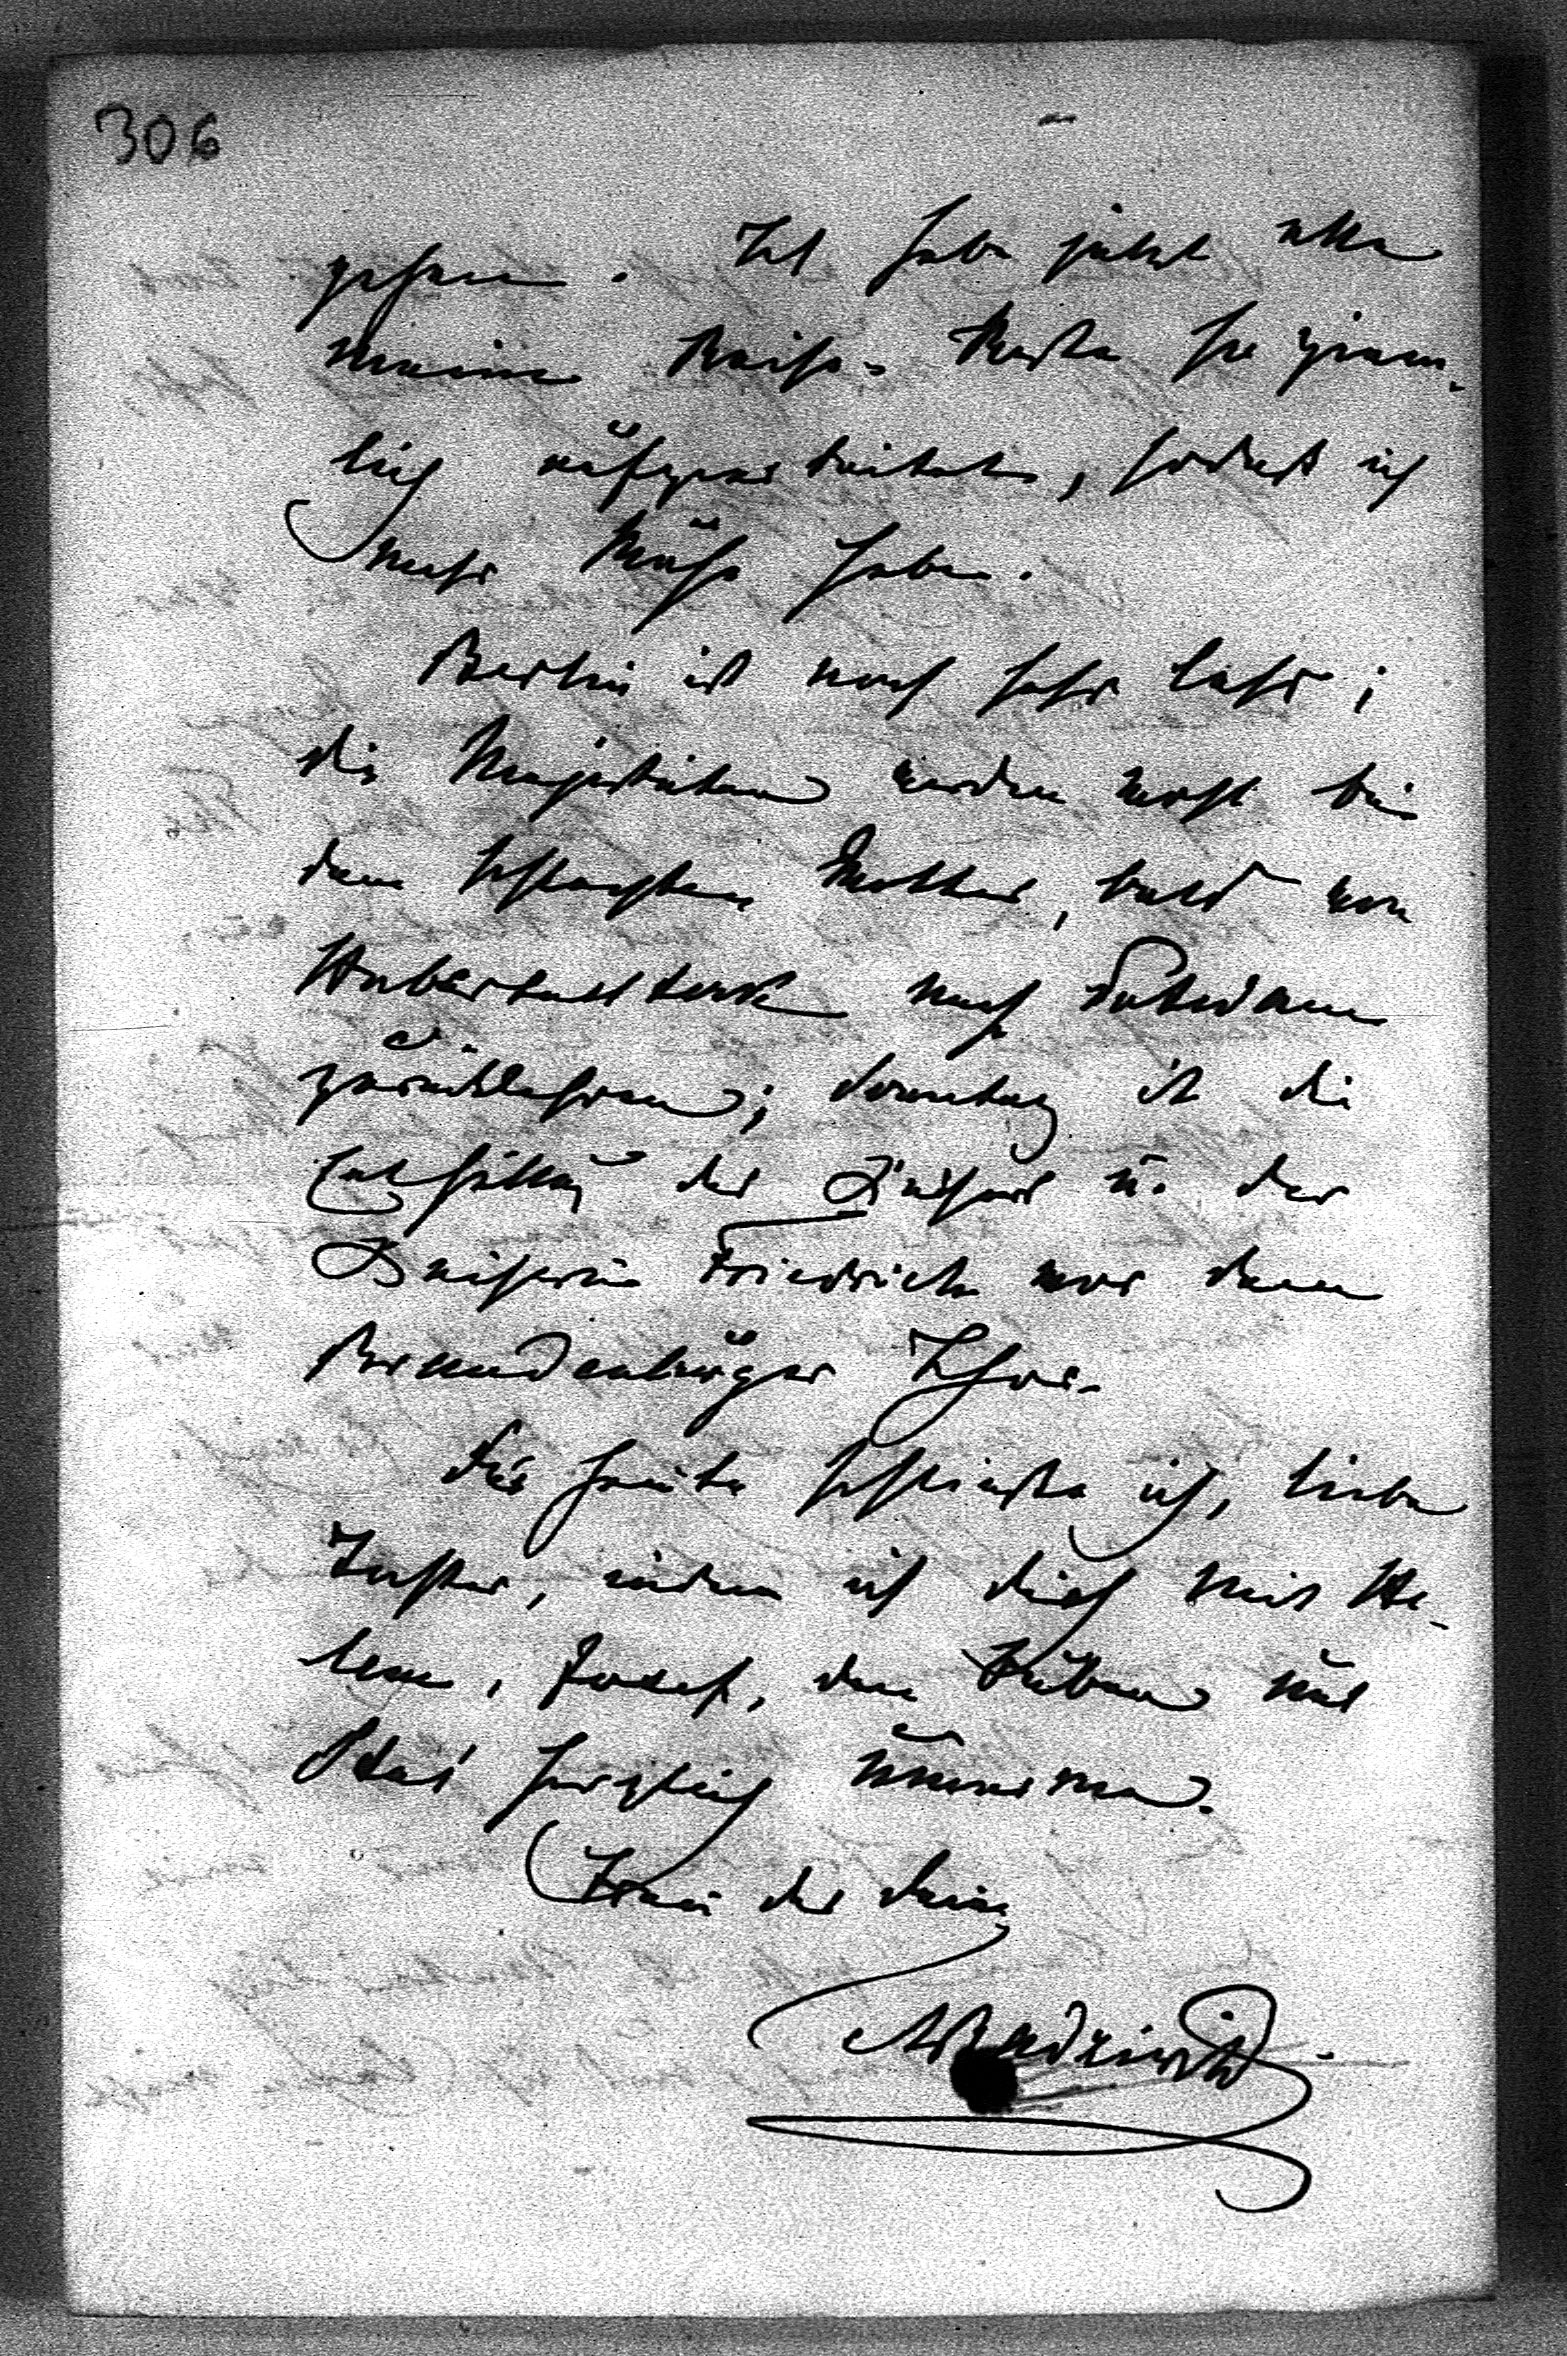 306
gehen. Ich habe jetzt alle
meine Reise-Reste so ziem-
lich aufgearbeitet, sodaß ich
mehr Muße habe.
Berlin ist noch sehr leer;
die Majestäten werden wohl bei
dem schlechten Wetter, bald von
Hubertusstock nach Potsdam
zurückkehren; Sonntag ist die
Enthüllung des Kaisers u. der
Kaiserin Friedrich vor dem
Brandenburger Thor.
Für heute schließe ich, liebe
Tochter, indem ich Dich mit He-
lene, Josef, den Buben und
Stas herzlich umarme.
Treu der Deine
ARadziwill